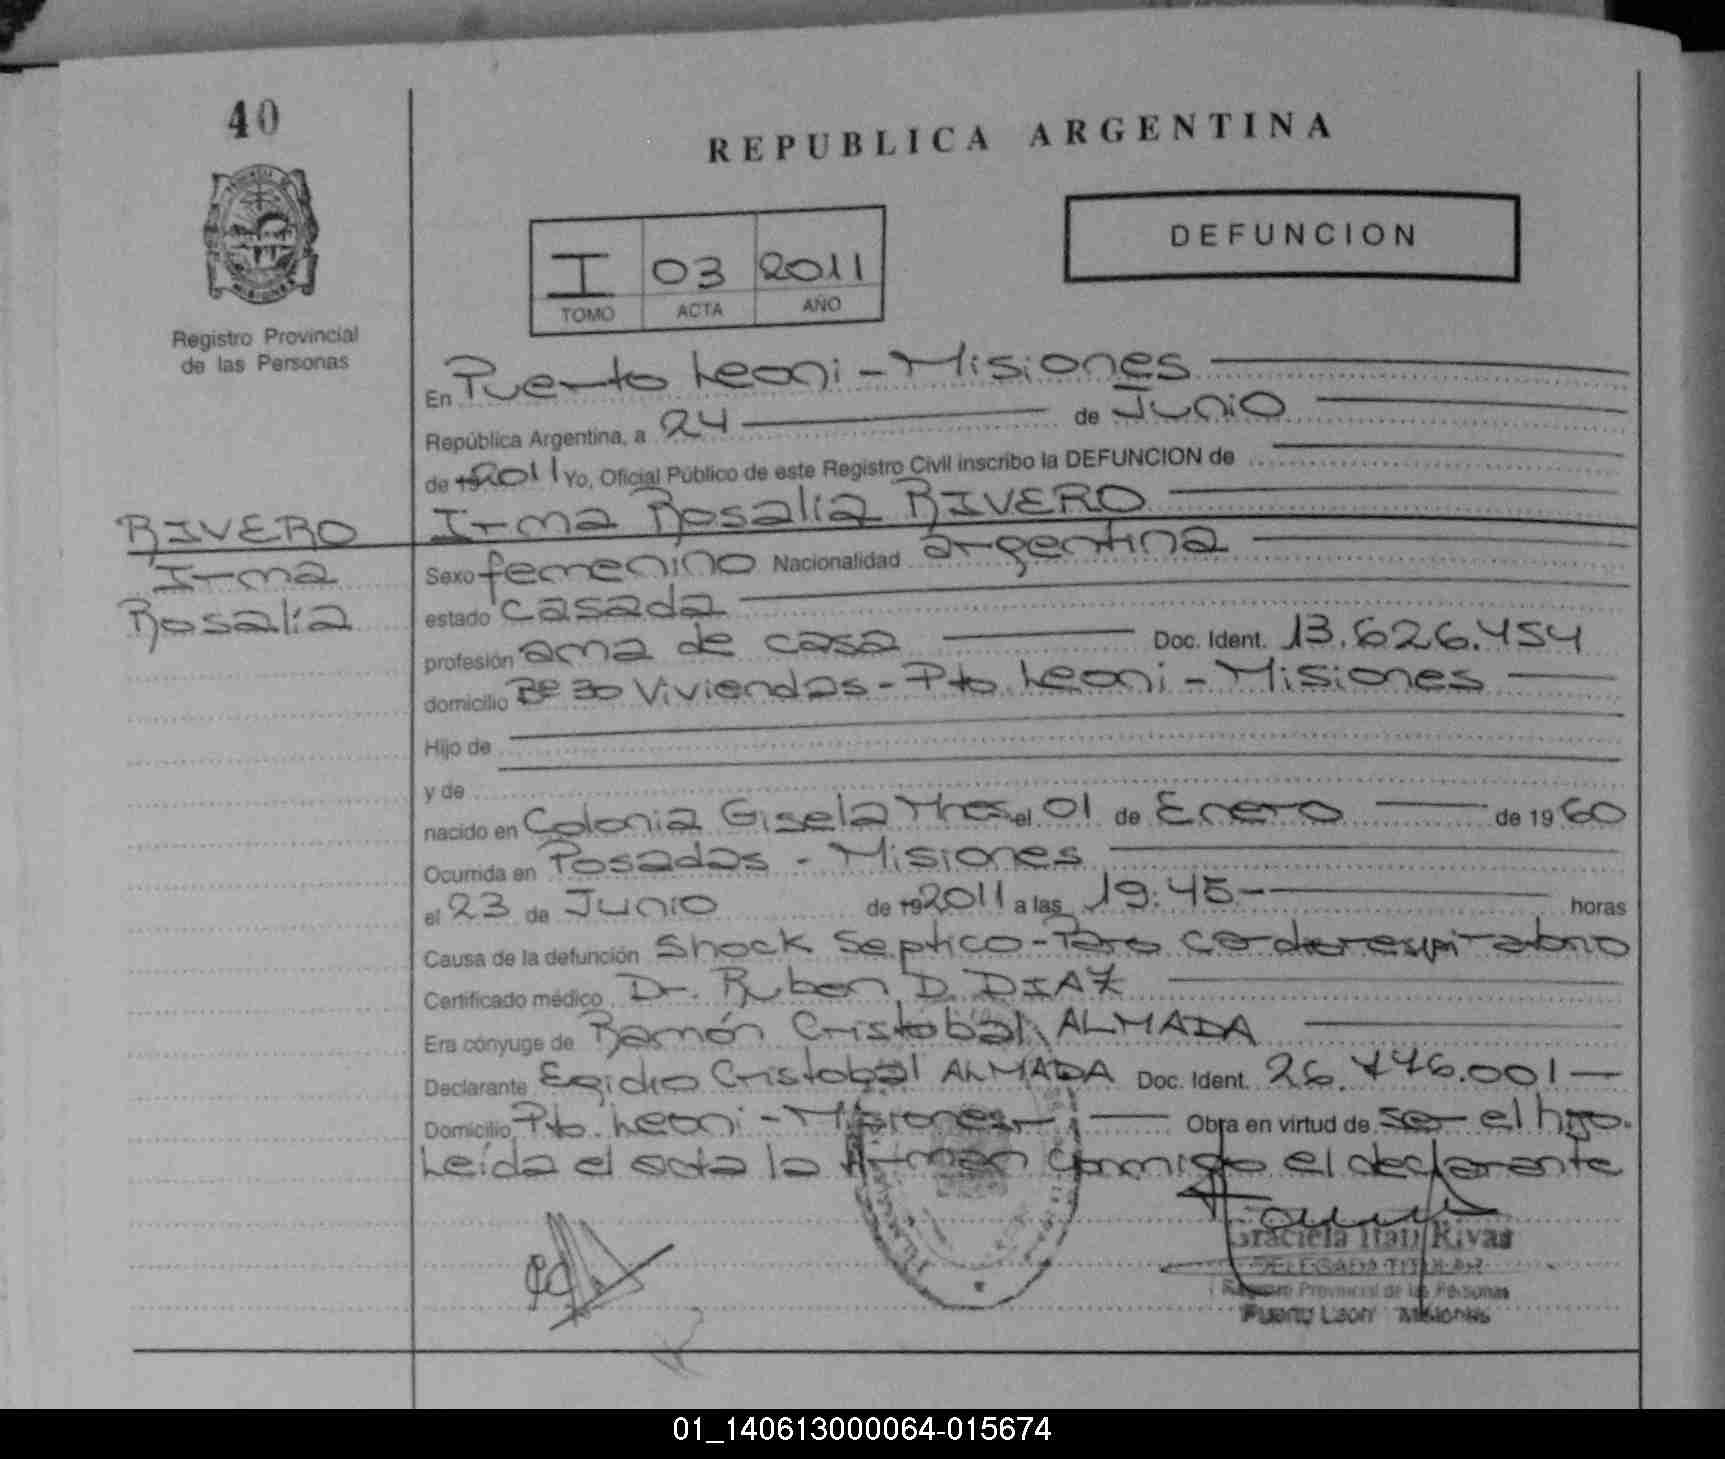 40
REPUBLICA ARGENTINA
DEFUNCION
I 03 2011
TOMO ACTA AÑO
Registro Provincial
de las Personas
En Puerto Leoni - Misiones
República Argentina, a 24 de Junio
de 19 2011 Yo, Oficial Público de este Registro Civil inscribo la DEFUNCION de
RIVERO
Irma
Rosalía
Irma Rosalía RIVERO
Sexo femenino Nacionalidad argentina
estado casada
profesión ama de casa Doc. Ident. 13.626.454
domicilio Bº 30 Viviendas - Pto. Leoni - Misiones
Hijo de
y de
nacido en Colonia Gisela Mnes. el 01 de Enero de 1960
Ocurrida en Posadas - Misiones
el 23 de Junio de 19 2011 a las 19:45 - horas
Causa de la defunción Shock Septico - Paro cardiorespiratorio
Certificado médico Dr. Ruben D. DIAZ
Era cónyuge de Ramón Cristobal ALMADA
Declarante Egidio Cristobal ALMADA Doc. Ident. 26.776.001
Domicilio Pto. Leoni - Misiones Obra en virtud de ser el hijo.
Leída el acta la firman conmigo el declarante
Graciela Itatí Rivas
DELEGADA TITULAR
Registro Provincial de las Personas
Puerto Leoni Misiones
01_140613000064-015674